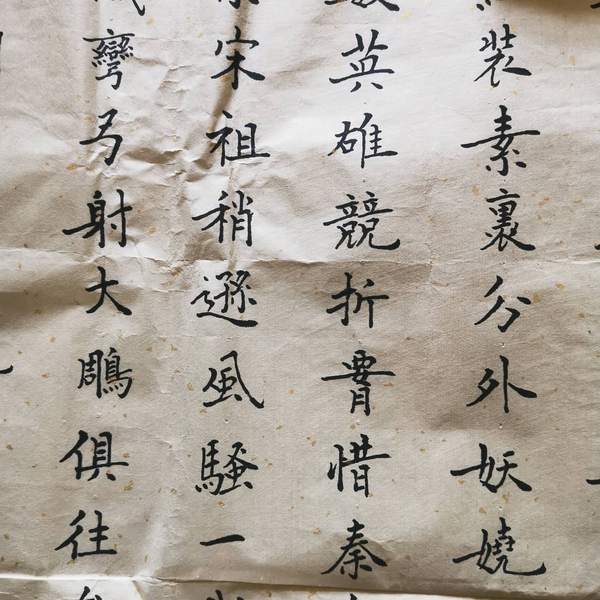 裝素裹分外妖嬈
英雄競折腰惜秦
宋祖稍遜風騷一
彎弓射大鵰俱往